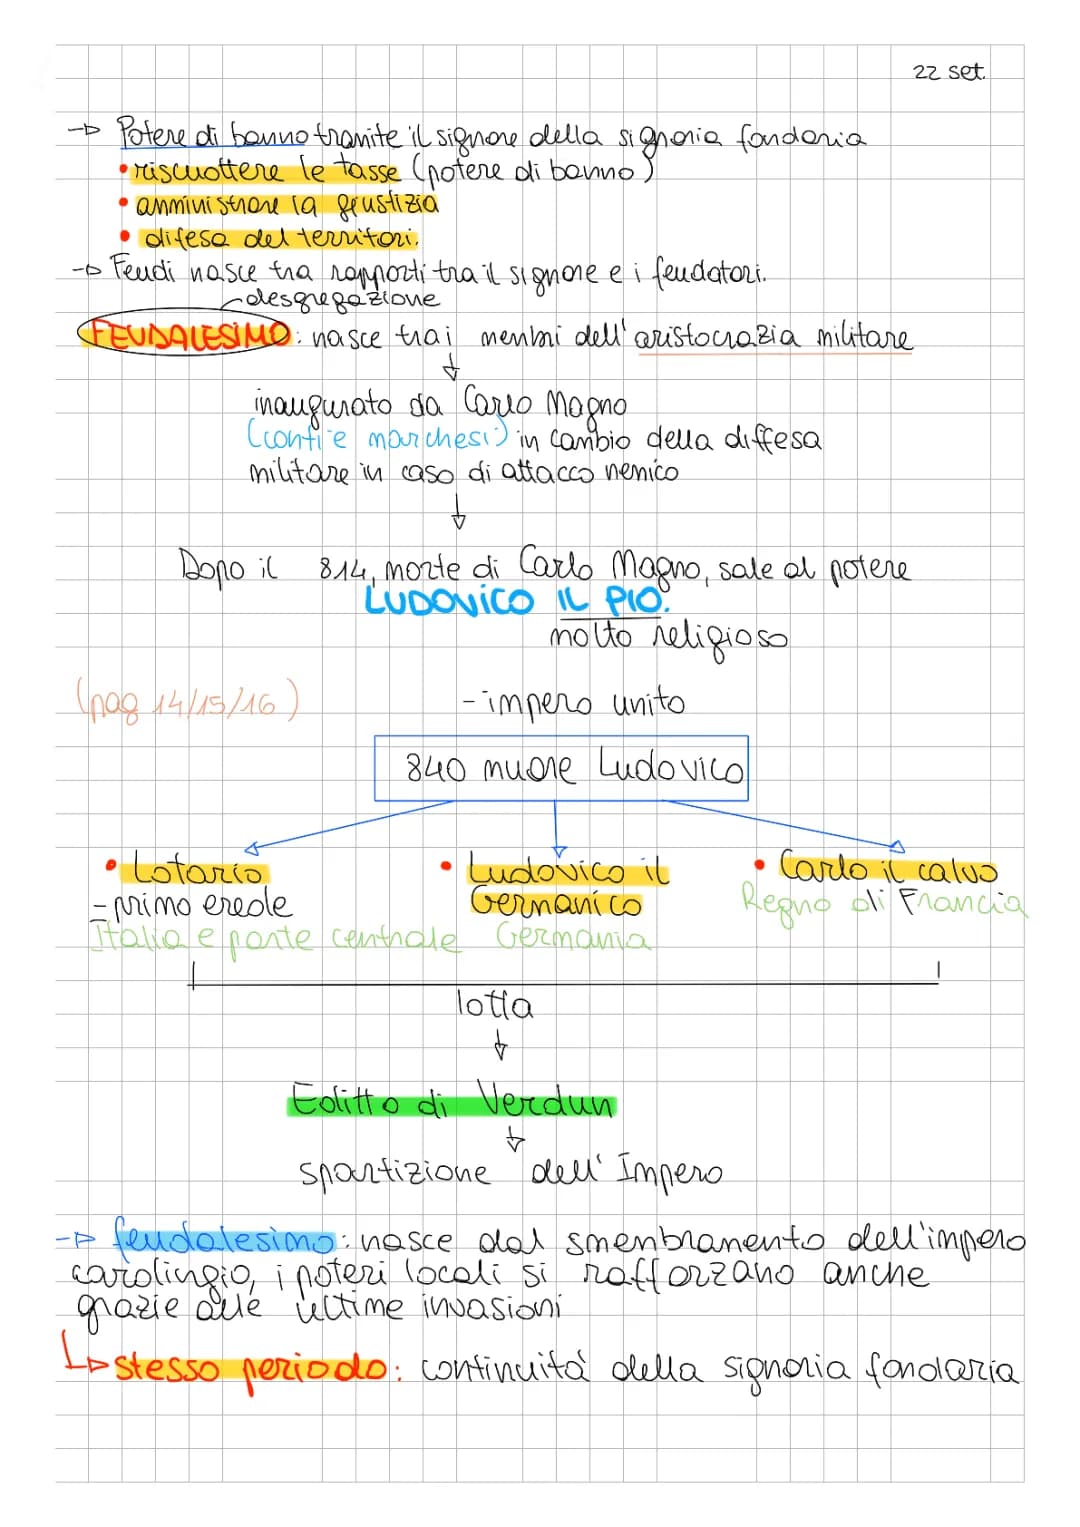 22 set.
→ Potere di banno tramite il signore della signoria fondaria
• riscuottere le tasse (potere di banno)
• amministrare la giustizia
• difesa del territori.
→ Feudi nasce tra rapporti tra il signore e i feudatori.
desgregazione
FEUDALESIMO: nasce trai membri dell'aristocrazia militare
↓
inaugurato da Carlo Magno
(conti e marchesi) in cambio della diffesa
militare in caso di attacco nemico
↓
Dopo il 814, morte di Carlo Magno, sale al potere
LUDOVICO IL PIO.
molto religioso
(pag 14/15/16) - impero unito
840 muore Ludovico
• Lotario • Ludovico il • Carlo il calvo
- primo erede Germanico Regno di Francia
Italia e parte centrale Germania
lotta
↓
Editto di Verdun
↓
spartizione dell'Impero
→ feudalesimo: nasce dal smenbramento dell'impero
carolingio, i poteri locali si rafforzano anche
grazie alle ultime invasioni
↳ stesso periodo: continuità della signoria fondaria